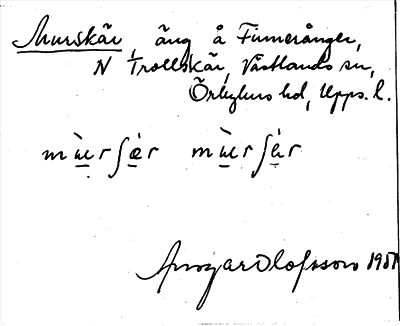 Murskär, äng å Finnerånger,
N Trollskär, Västlands sn,
Örbyhus hd, Upps. l.
mùrʃær mùrʃár
Ansgar Olofsson 1951